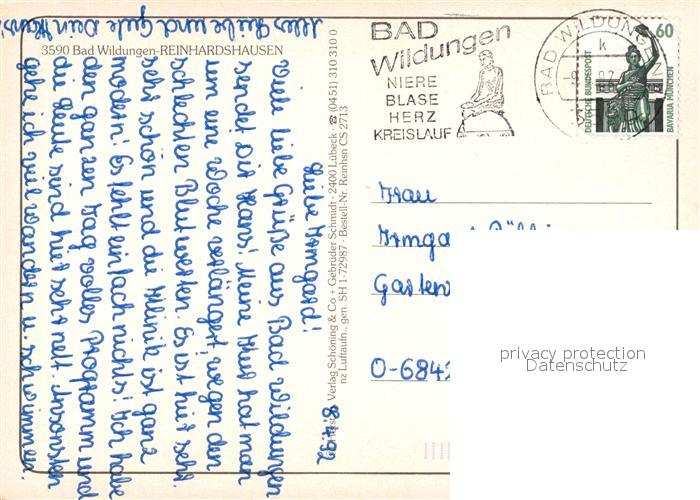 3590 Bad Wildungen-REINHARDSHAUSEN
Verlag Schöning & Co + Gebrüder Schmidt · 2400 Lübeck ☎ (0451) 310 310 0
nz Luftaufn., gen. SH 1-72987 · Bestell-Nr. Reinhsn CS 2713
8.4.92
Liebe Irmgard!
Viele liebe Grüße aus Bad Wildungen
sendet dir Hans! Meine Kur hat man
um eine Woche verlängert, wegen den
schlechten Blutwerten. Es ist hier sehr
sehr schön und die Klinik ist ganz
modern! Es fehlt einfach nichts! Ich habe
den ganzen Tag volles Programm und
die Leute sind hier sehr nett. Ansonsten
gehe ich viel wandern u. schwimmen.
Alles Liebe und Gute Dein Hans!
BAD
Wildungen
NIERE
BLASE
HERZ
KREISLAUF
BAD WILDUNG
k
60
DEUTSCHE BUNDESPOST
BAVARIA MÜNCHEN
Frau
Irmga
Garten
O-684
privacy protection
Datenschutz